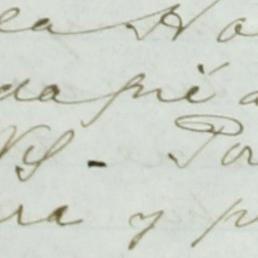 ea Ho
da pié a
VS - Por
ra y p